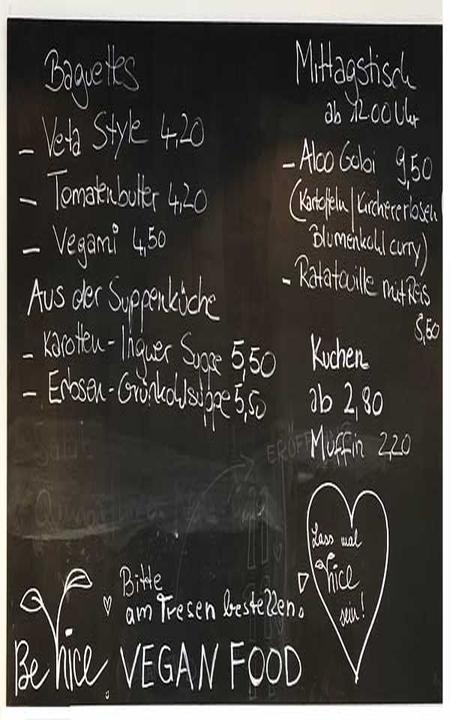 Baguettes
- Veta Style 4,20
- Tomatenbutter 4,20
- Vegami 4,50
Aus der Suppenküche
- Karotten-Ingwer Suppe 5,50
- Erbsen-Grünkohlsuppe 5,50
Mittagstisch
ab 12 00 Uhr
- Aloo Gobi 9,50
(Kartoffeln/Kichererbsen
Blumenkohl curry)
- Ratatouille mit Reis
8,50
Kuchen
ab 2,80
Muffin 2,20
Lass mal
nice
sein!
Bitte
am Tresen bestellen.
Be Nice. VEGAN FOOD